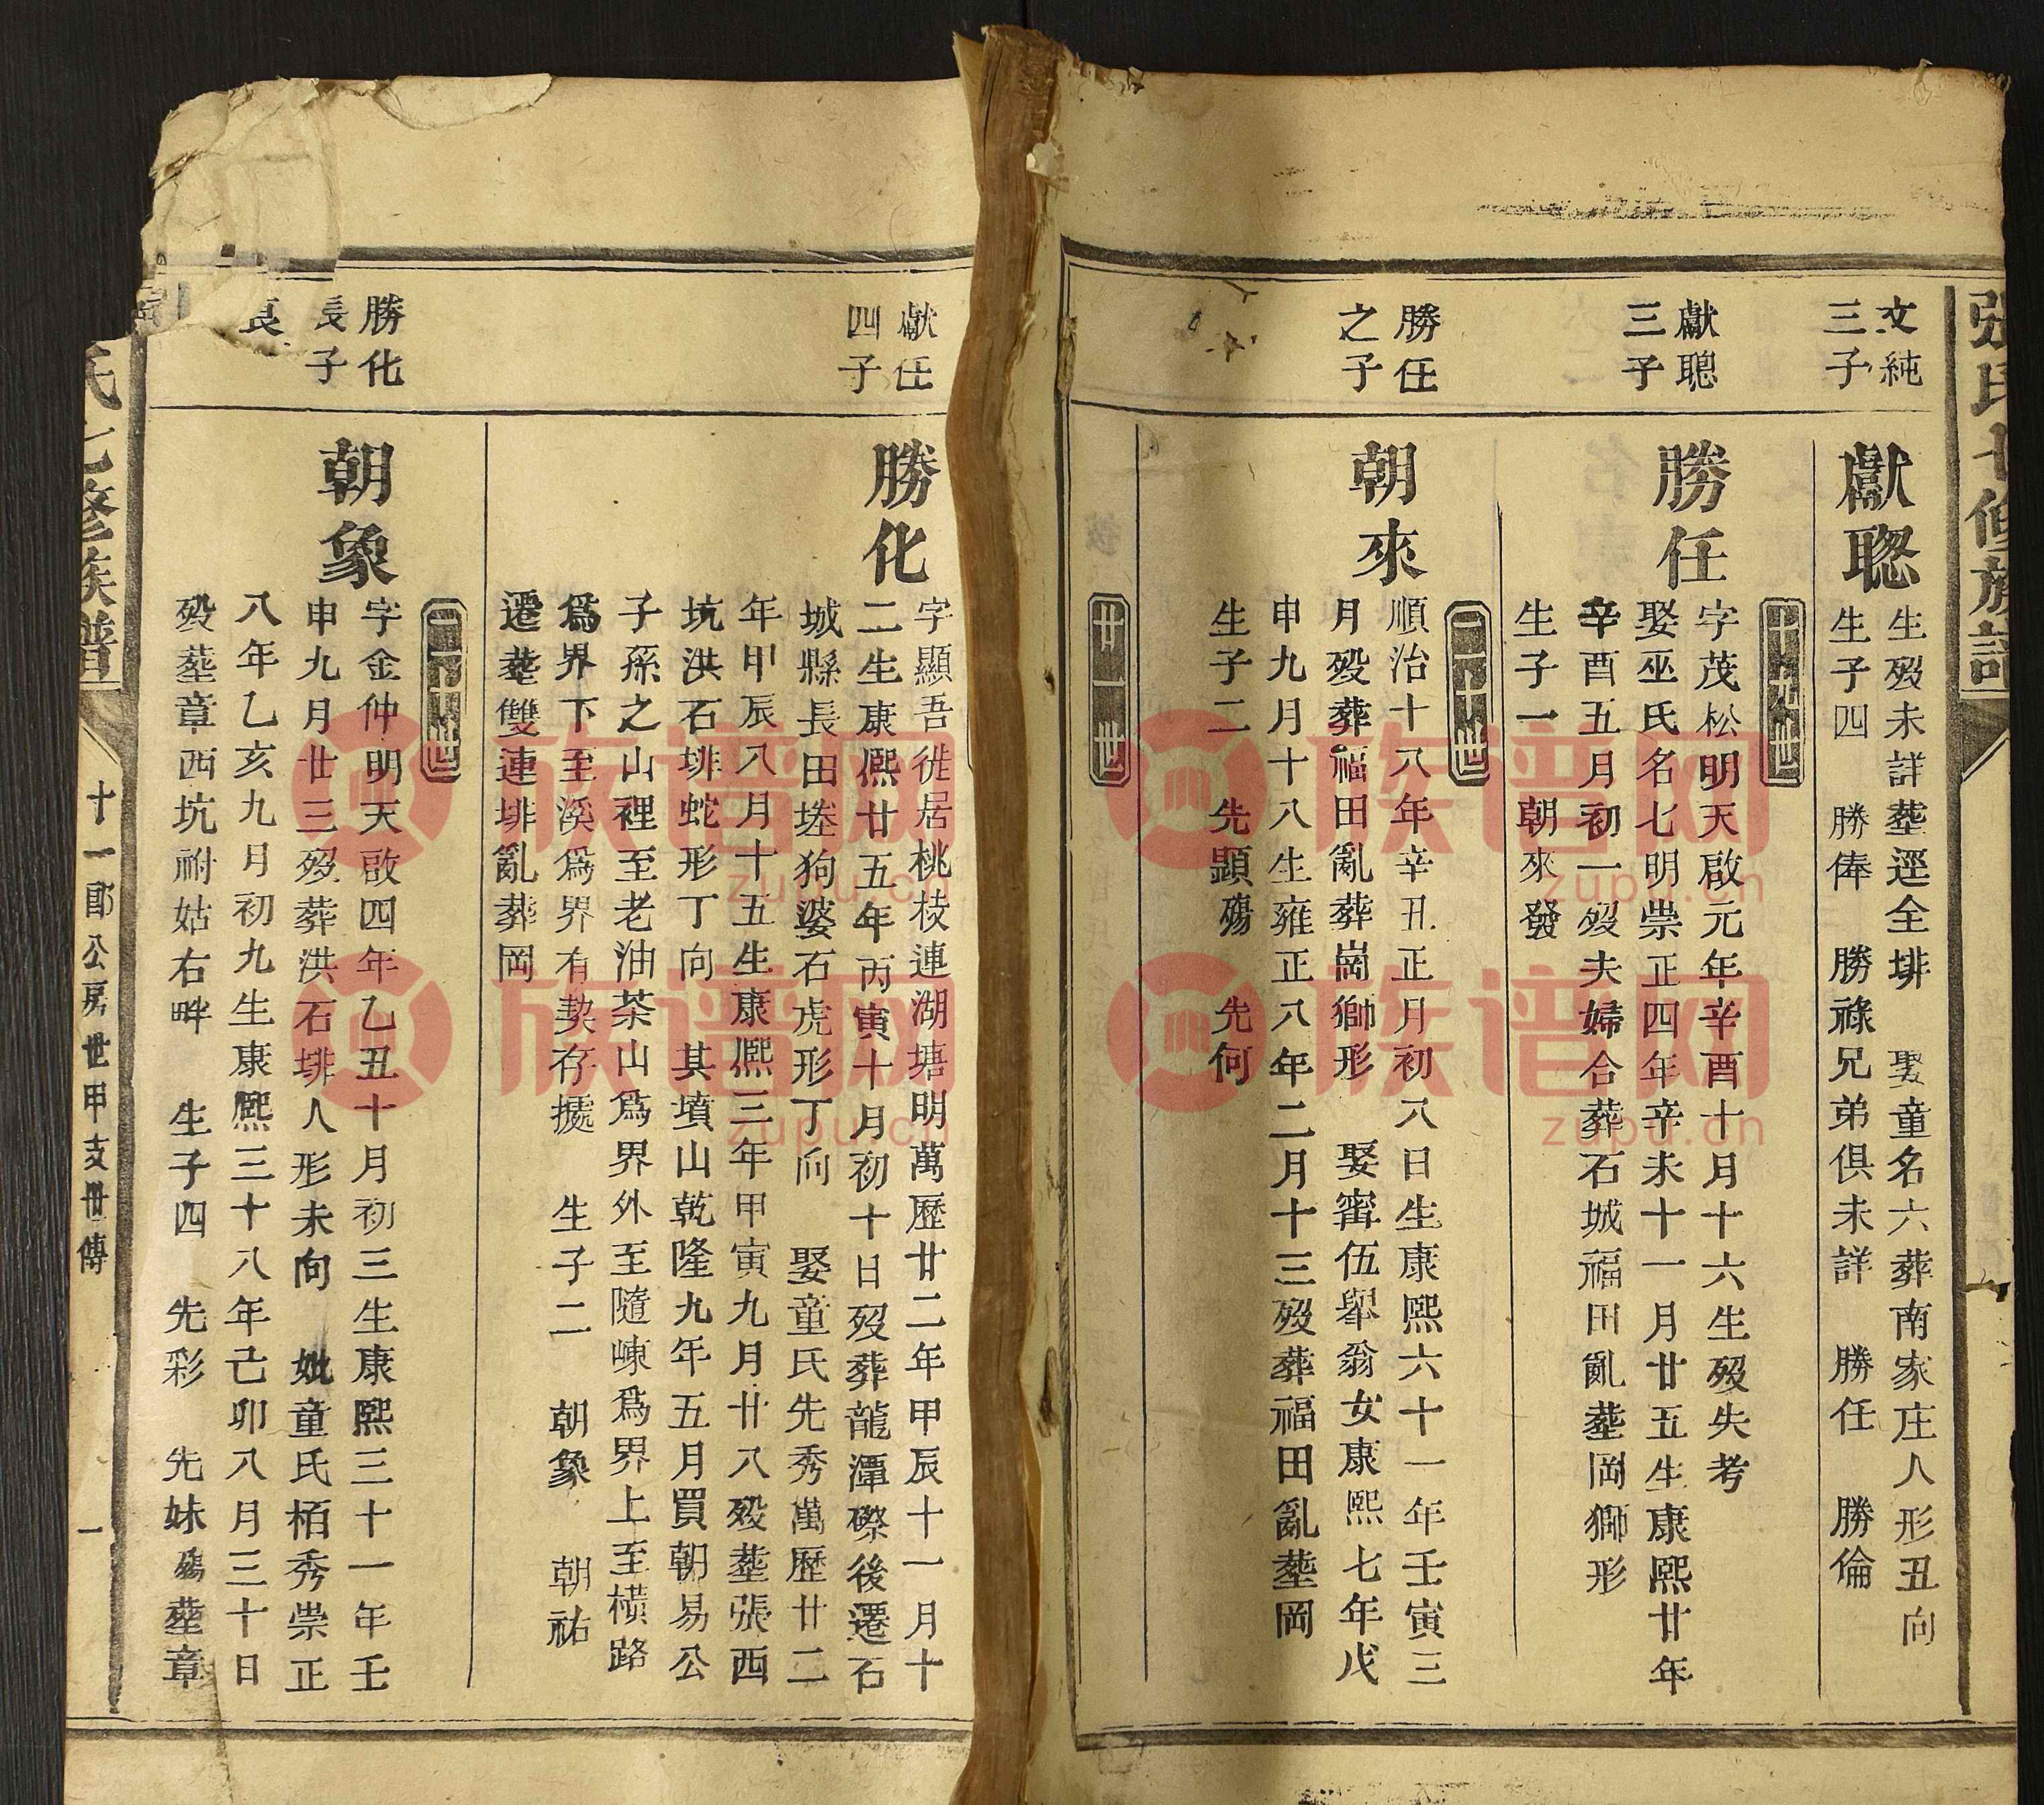 張氏七修族譜
文純
三子
獻聰
生歿未詳塟逕全排 娶童名六葬南家庄人形丑向
生子四 勝俸 勝祿兄弟俱未詳 勝任 勝倫
十九世
獻聰
三子
勝任
字茂松明天啟元年辛酉十月十六生歿失考
娶巫氏名七明崇正四年辛未十一月廿五生康熙廿年
辛酉五月初一歿夫婦合葬石城福田亂塟岡獅形
生子一 朝來發
二十世
勝任
之子
朝來
順治十八年辛丑正月初八日生康熙六十一年壬寅三
月歿葬福田亂葬崗獅形 娶甯伍舉翁女康熙七年戊
申九月十八生雍正八年二月十三歿葬福田亂塟岡
生子二 先顯殤 先何
廿一世
獻任
四子
勝化
字顯吾徙居桃枝連湖塘明萬歷廿二年甲辰十一月十
二生康熙廿五年丙寅十月初十日歿葬龍潭磜後遷石
城縣長田塟狗婆石虎形丁向 娶童氏先秀萬歷廿二
年甲辰八月十五生康熙三年甲寅九月廿八歿塟張西
坑洪石排蛇形丁向 其墳山乾隆九年五月買朝易公
子孫之山裡至老油茶山為界外至隨崠為界上至橫路
為界下至溪為界有契存據 生子二 朝象 朝祐
遷塟雙連排亂葬岡
二十世
勝化
長子
朝象
字金仲明天啟四年乙丑十月初三生康熙三十一年壬
申九月廿三歿葬洪石排人形未向 妣童氏栢秀崇正
八年乙亥九月初九生康熙三十八年己卯八月三十日
歿塟章西坑祔姑右畔 生子四 先彩 先妹殤塟章
氏七修族譜
十一郎公房世甲支世傳
一
族谱网
zupu.cn
族谱网
zupu.cn
族谱网
zupu.cn
族谱网
zupu.cn